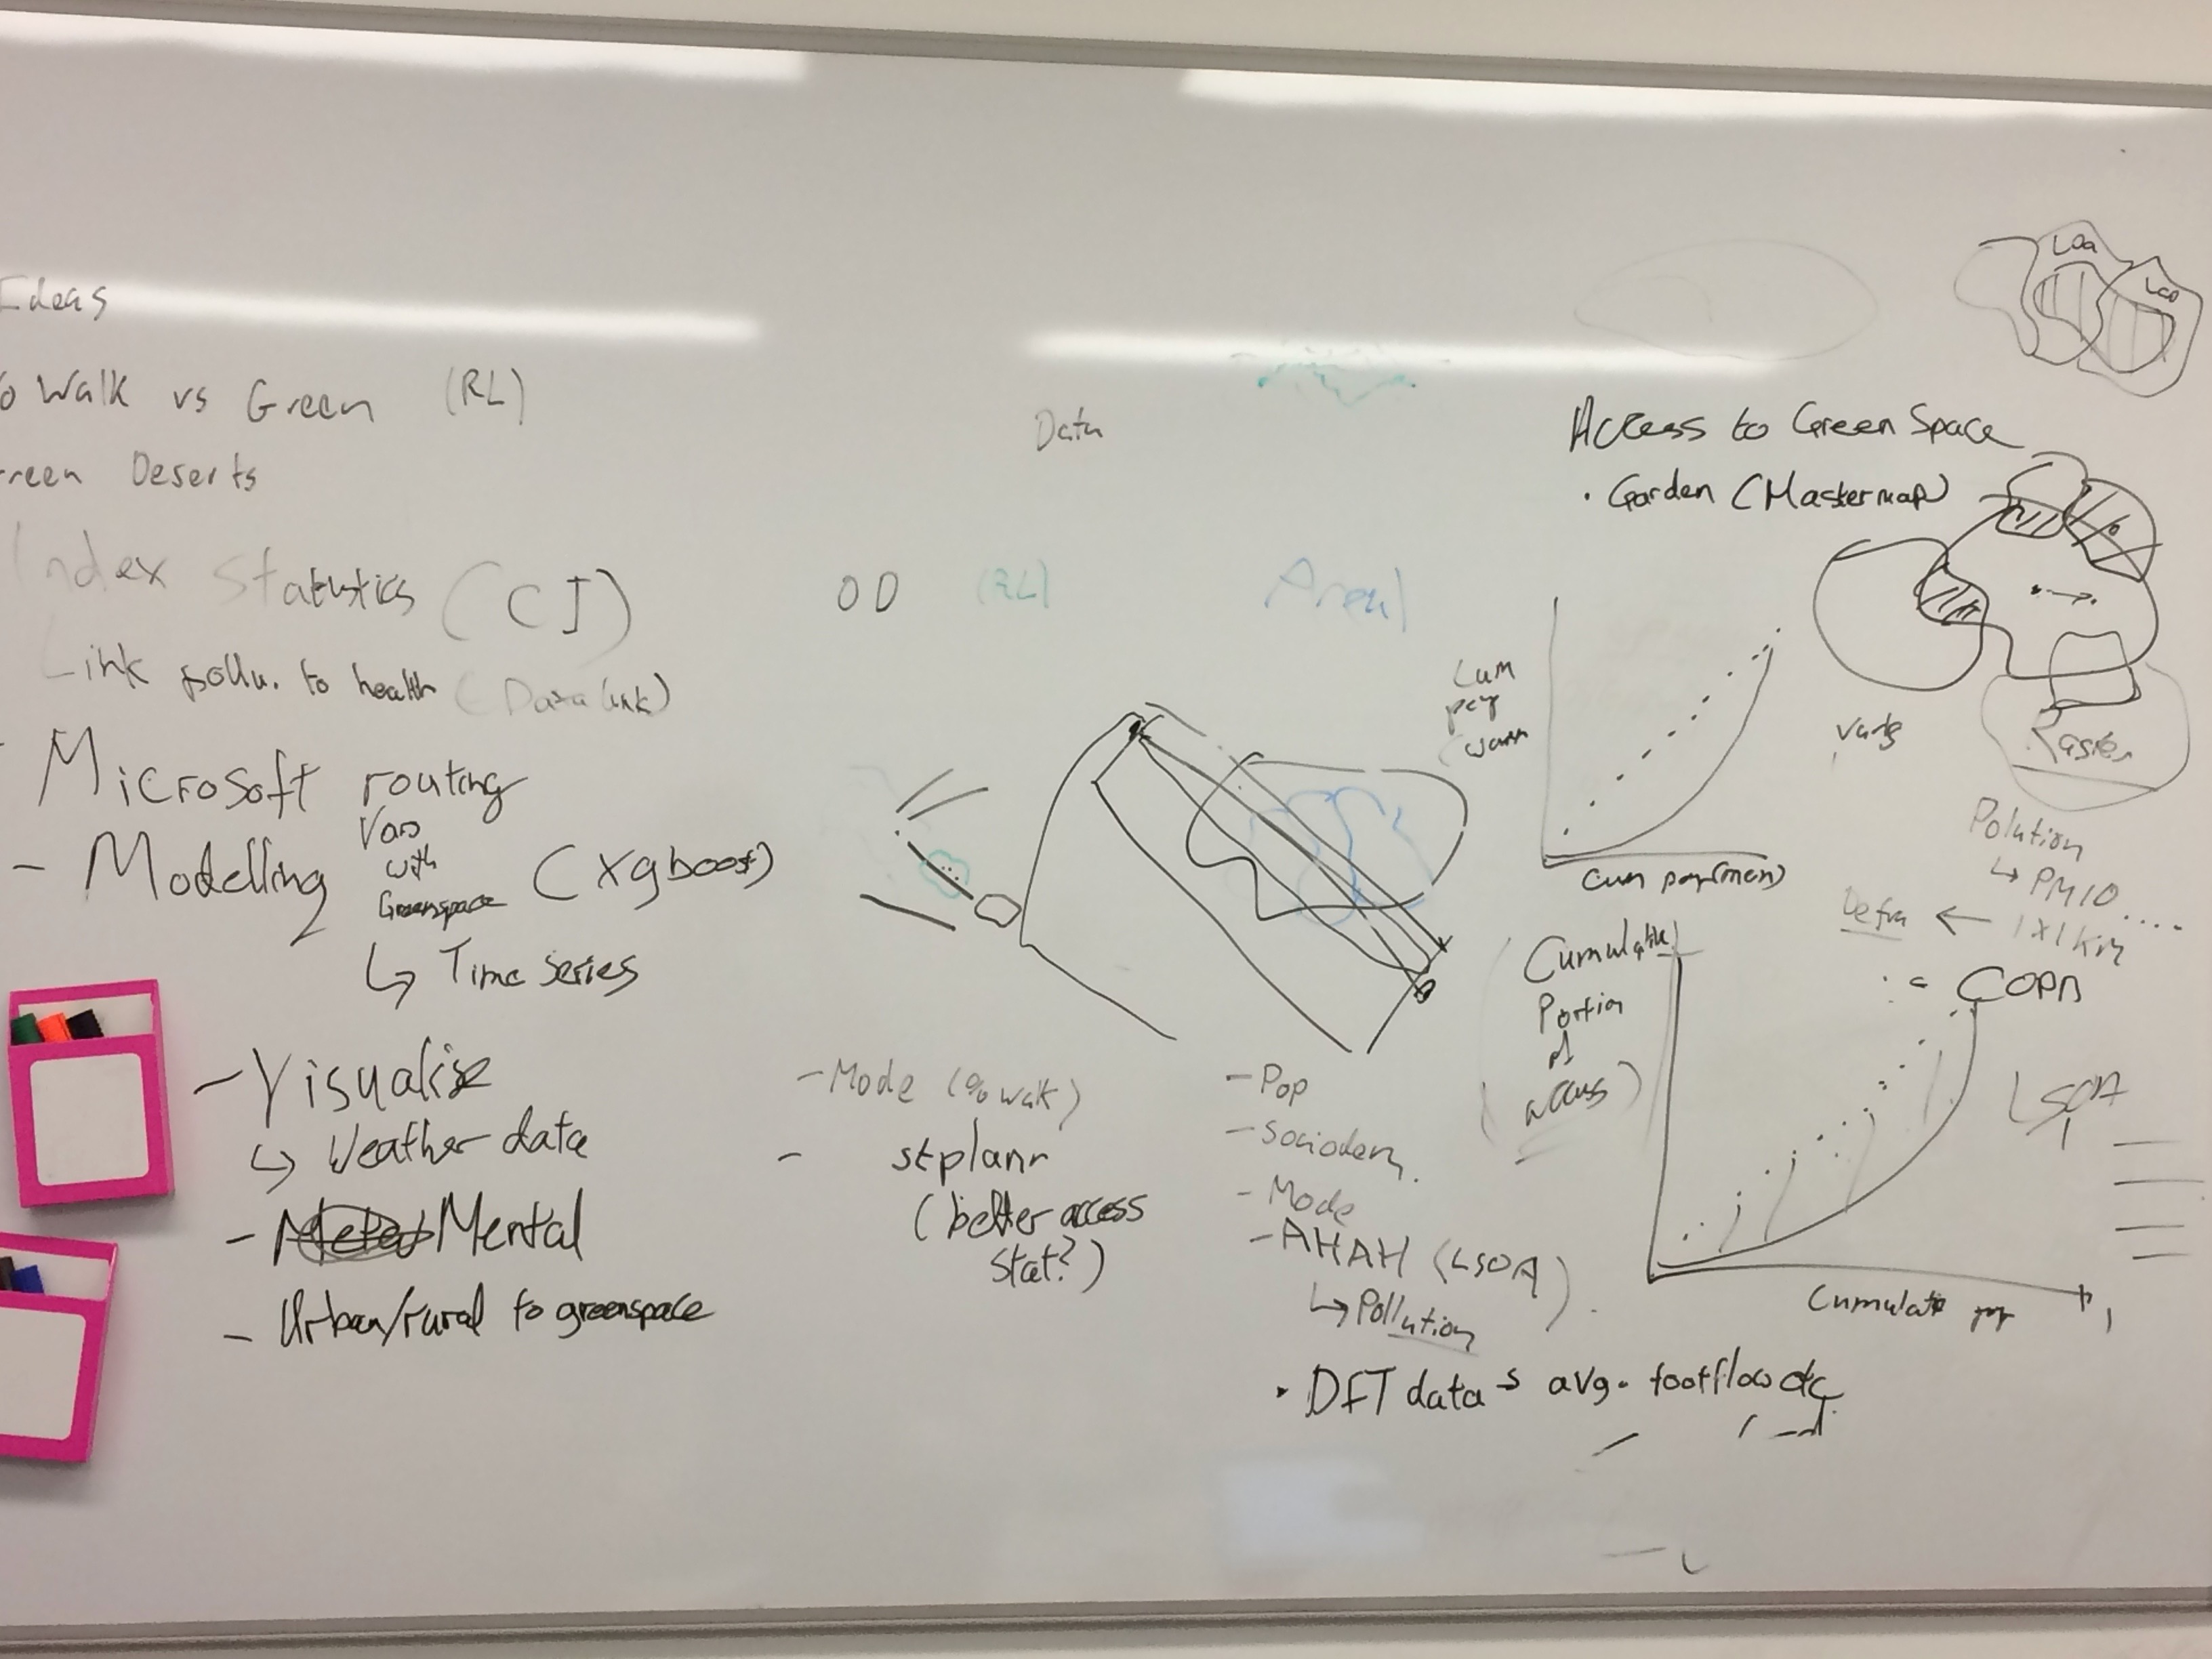 Ideas
Walk vs Green (RL)
reen Deserts
Index Statistics (CJ)
Link pollu. to health (Data link)
- Microsoft routing
- Modelling Vars with Greenspace (xgboost)
↳ Time series
- Visualise
↳ Weather data
- Mental
- Urban/rural to greenspace
Data
OD (RL) Areal
- Mode (% walk)
- stplanr
(better access
stat?)
- Pop
- Sociodem.
- Mode
- AHAH (LSOA)
↳ Pollution
• DFT data → avg. footflow etc
Access to Green Space
• Garden (Mastermap)
Cum
Cum pay (men)
Cumulative
Portion
of
access
Cumulate pop
1
Raster
Polution
↳ PM10....
Defra ← 1x1km
COPD
LSOA